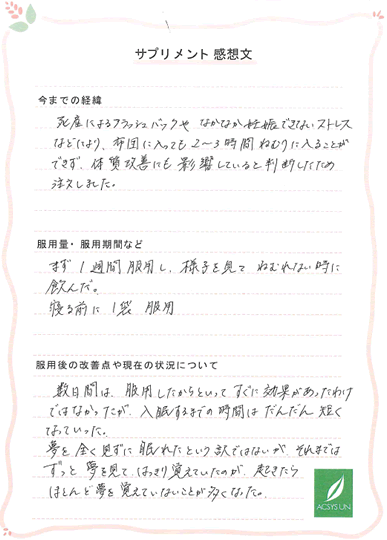 サプリメント 感想文
今までの経緯
死産によるフラッシュバックや なかなか妊娠できないストレス
などにより、布団に入っても 2〜3時間ねむりに入ることが
できず、体質改善にも影響していると判断したため
注文しました。
服用量・服用期間など
まず 1週間服用し、様子を見て ねむれない時に
飲んだ。
寝る前に 1袋 服用
服用後の改善点や現在の状況について
数日間は、服用したからといって すぐに効果があったわけ
ではなかったが、入眠するまでの時間は だんだん 短く
なっていった。
夢を全く見ずに 眠れたという訳ではないが、それまでは
ずっと 夢を見て、はっきり覚えていたのが、起きたら
ほとんど夢を覚えていないことが多くなった。
ACSYS UN